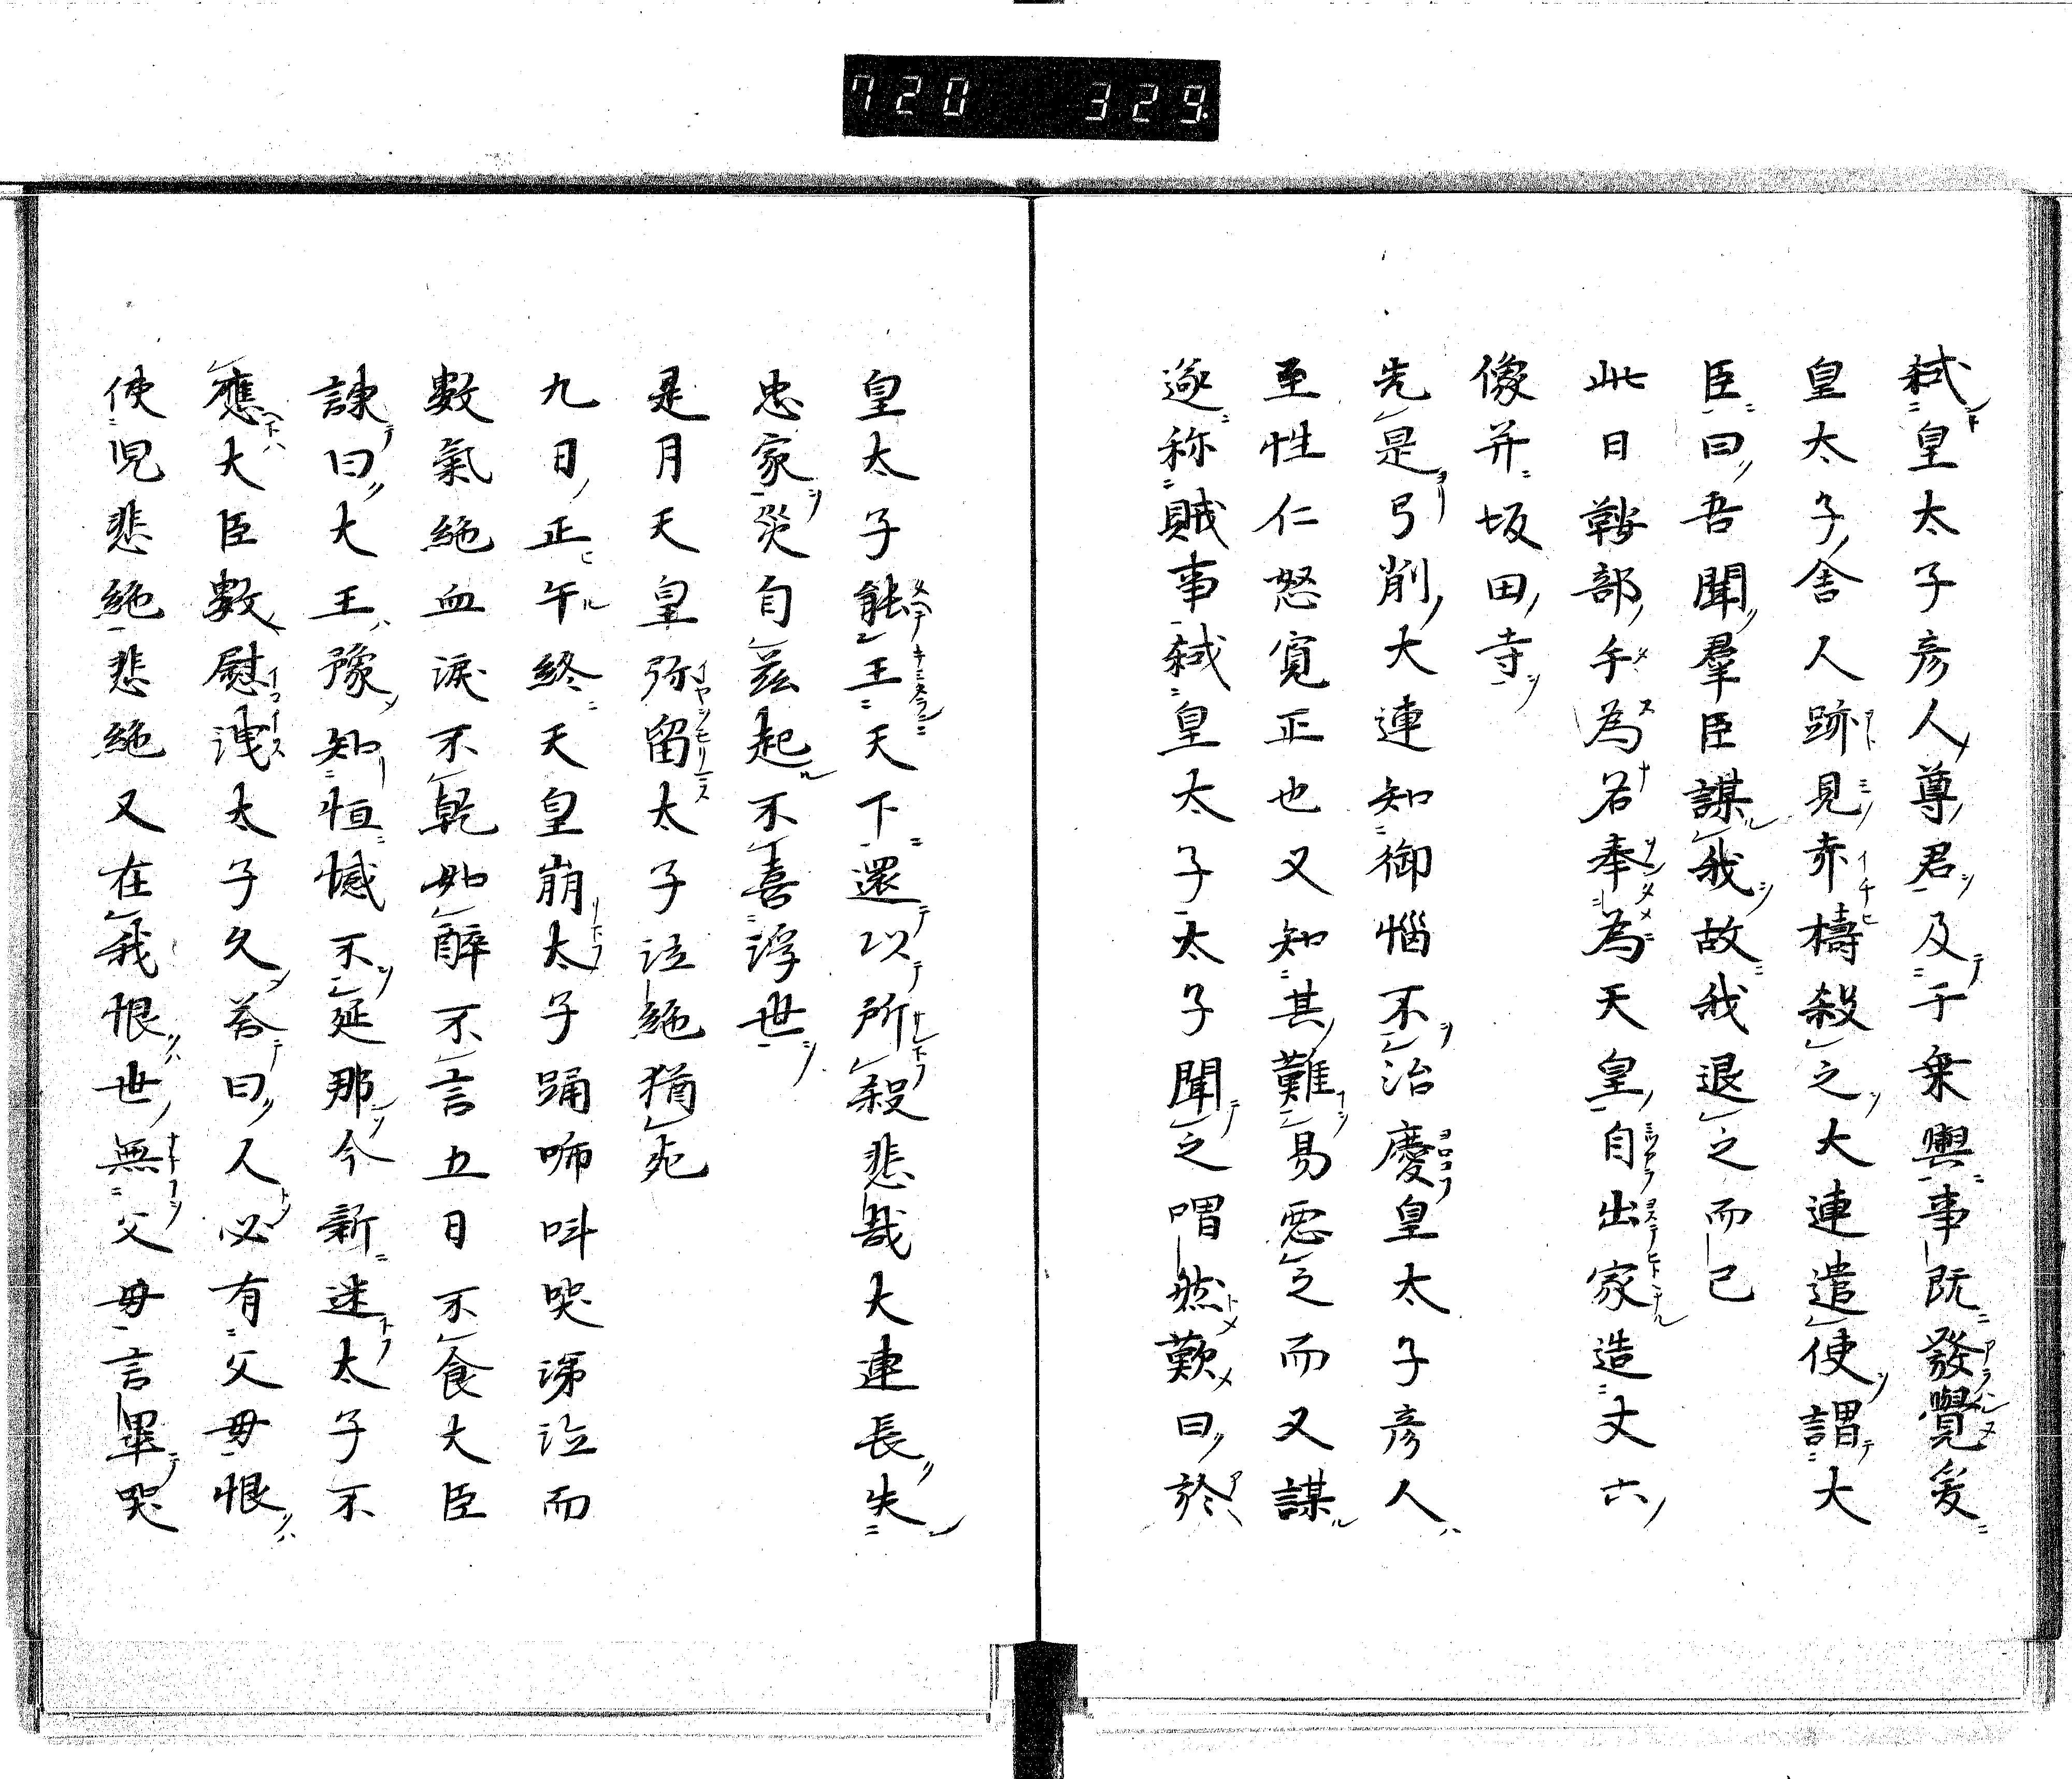 720 329
弑皇太子彦人尊君及千乗輿事既發覺爰
皇太子舎人跡見赤檮殺之大連遣使謂大
臣曰吾聞羣臣謀我故我退之而已
此日鞍部手為名奉為天皇自出家造丈六
像并坂田寺
先是弓削大連知御惱不治慶皇太子彦人
至性仁怒寛正也又知其難易悪之而又謀
逐称賊事弑皇太子太子聞之喟然歎曰於
皇太子能王天下還以所殺悲哉大連長失
忠家災自茲起不喜浮世
是月天皇弥留太子泣絶猶死
九日正午終天皇崩太子踊咘叫哭涕泣而
數氣絶血涙不乾如醉不言五日不食大臣
諌曰大王豫知恒憾不延那今新迷太子不
應大臣數慰洩太子久答曰人必有父母恨
使児悲絶悲絶又在我恨世無父母言畢哭